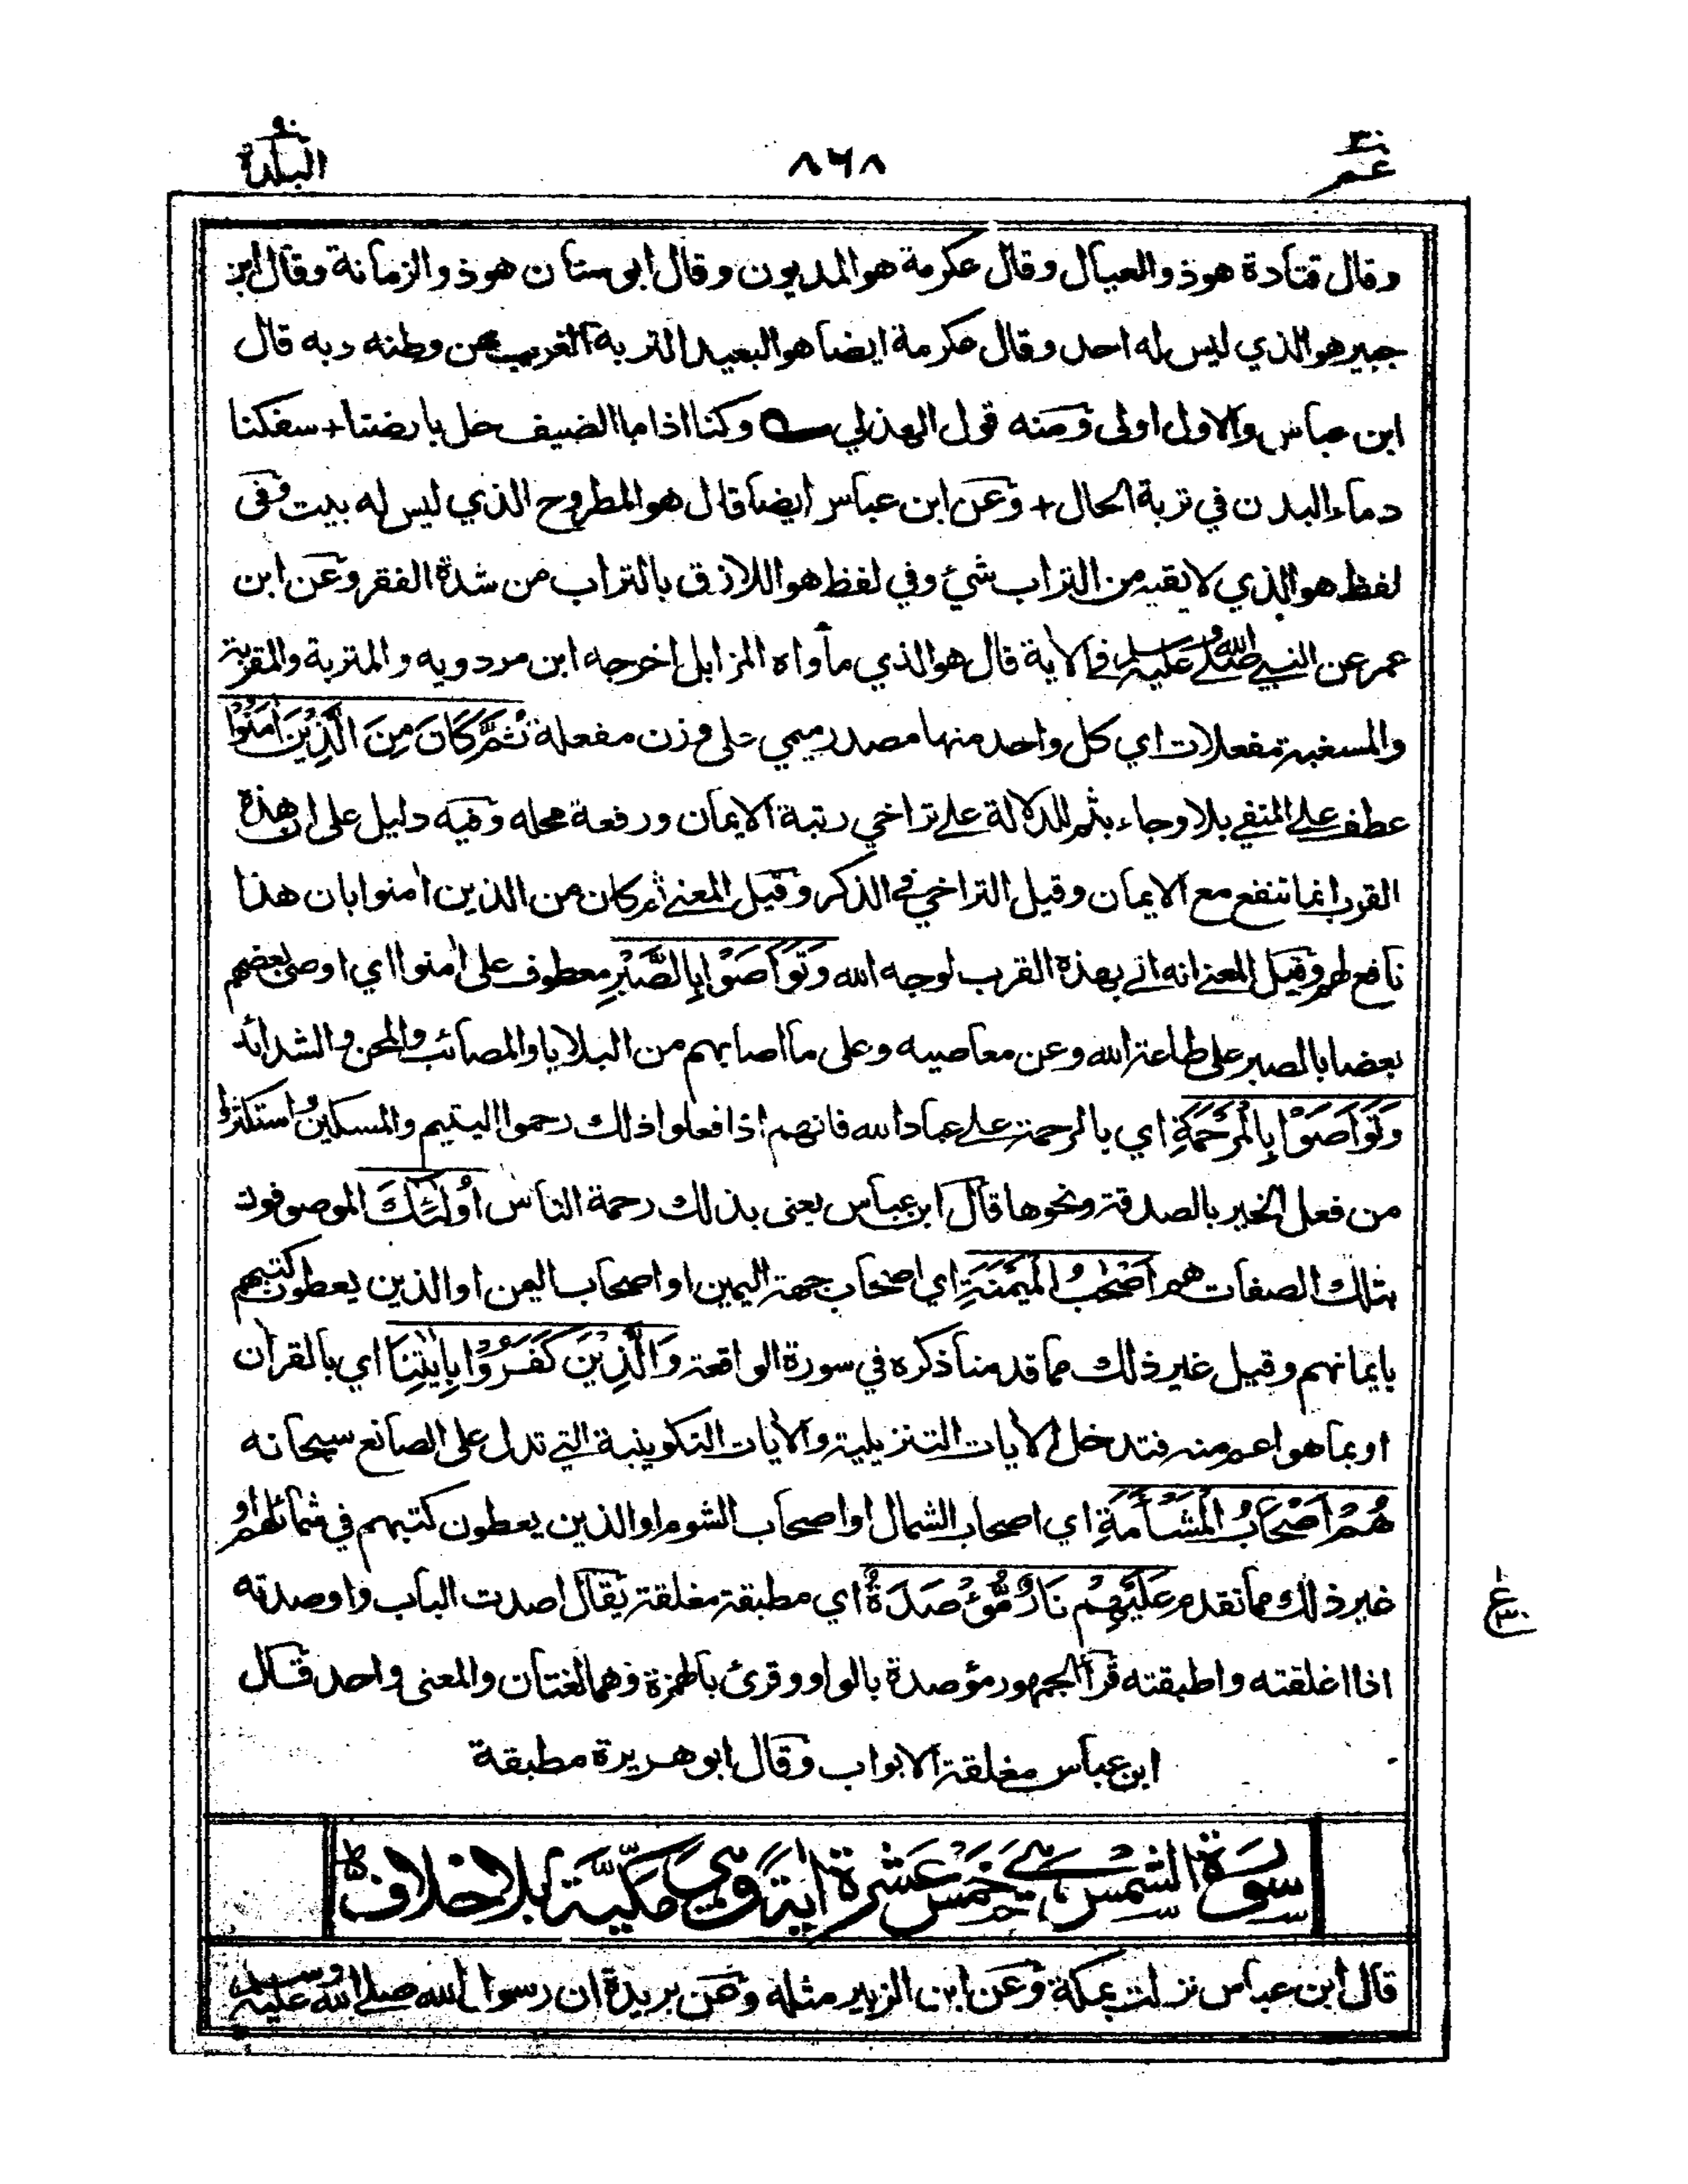 عم ٣٠
٨٦٨
البلد ٩٠
وقال قتادة هو ذو العيال وقال عكرمة هو المديون وقال ابو سنان هو ذو الزمانة وقال ابن
جبير هو الذي ليس له احد وقال عكرمة ايضا هو البعيد التربة الغريب عن وطنه وبه قال
ابن عباس والاول اولى ومنه قول الهذلي وكنا اذا ما الضيف حل بارضنا + سفكنا
دماء البدن في تربة الحال + وعن ابن عباس ايضا قال هو المطروح الذي ليس له بيت وفى
لفظ هو الذي لا يقيه من التراب شيئ وفي لفظ هو اللازق بالتراب من شدة الفقر وعن ابن
عمر عن النبي صلى الله عليه وسلم في الاية قال هو الذي مأواه المزابل اخرجه ابن مردويه والمتربة والمقربة
والمسغبة مفعلات اي كل واحد منها مصدر ميمي على وزن مفعلة ثُمَّ كَانَ مِنَ الَّذِيْنَ اٰمَنُوْا
عطف على المنفي بلا وجاء بثم للدلالة على تراخي رتبة الايمان ورفعة محله وفيه دليل على ان هذه
القرب انما تنفع مع الايمان وقيل التراخي في الذكر وقيل المعنى ثم كان من الذين اٰمنوا بان هذا
نافع لهم وقيل المعنى انه اتى بهذه القرب لوجه الله وَتَوَاصَوْا بِالصَّبْرِ معطوف على اٰمنوا اي اوصى بعضهم
بعضا بالصبر على طاعة الله وعن معاصيه وعلى ما اصابهم من البلايا والمصائب والمحن والشدائد
وَتَوَاصَوْا بِالْمَرْحَمَةِ اي بالرحمة على عباد الله فانهم اذا فعلوا ذلك رحموا اليتيم والمسكين واستكثروا
من فعل الخير بالصدقة ونحوها قال ابن عباس يعنى بذلك رحمة الناس اُولٰئِكَ الموصوفون
بتلك الصفات هم اَصْحٰبُ الْمَيْمَنَةِ اي اصحاب جهة اليمين او اصحاب اليمن او الذين يعطون كتبهم
بايمانهم وقيل غير ذلك مما قدمنا ذكره في سورة الواقعة وَالَّذِيْنَ كَفَرُوْا بِاٰيٰتِنَا اي بالقراٰن
او بما هو اعم منه فتدخل الاٰيات التنزيلية والاٰيات التكوينية التي تدل على الصانع سبحانه
هُمْ اَصْحَابُ الْمَشْاَمَةِ اي اصحاب الشمال او اصحاب الشوم او الذين يعطون كتبهم في شمائلهم او
غير ذلك مما تقدم عَلَيْهِمْ نَارٌ مُّؤْصَدَةٌ اي مطبقة مغلقة يقال اصدت الباب واوصدته
اذا اغلقته واطبقته قرأ الجمهور مؤصدة بالواو وقرئ بالهمزة وهما لغتان والمعنى واحد قال
ابن عباس مغلقة الابواب وقال ابو هريرة مطبقة
سورة الشمس هي خمس عشرة اٰية وهي مكيّة بلا خلاف
قال ابن عباس نزلت بمكة وعن ابن الزبير مثله وعن بريدة ان رسول الله صلى الله عليه وسلم